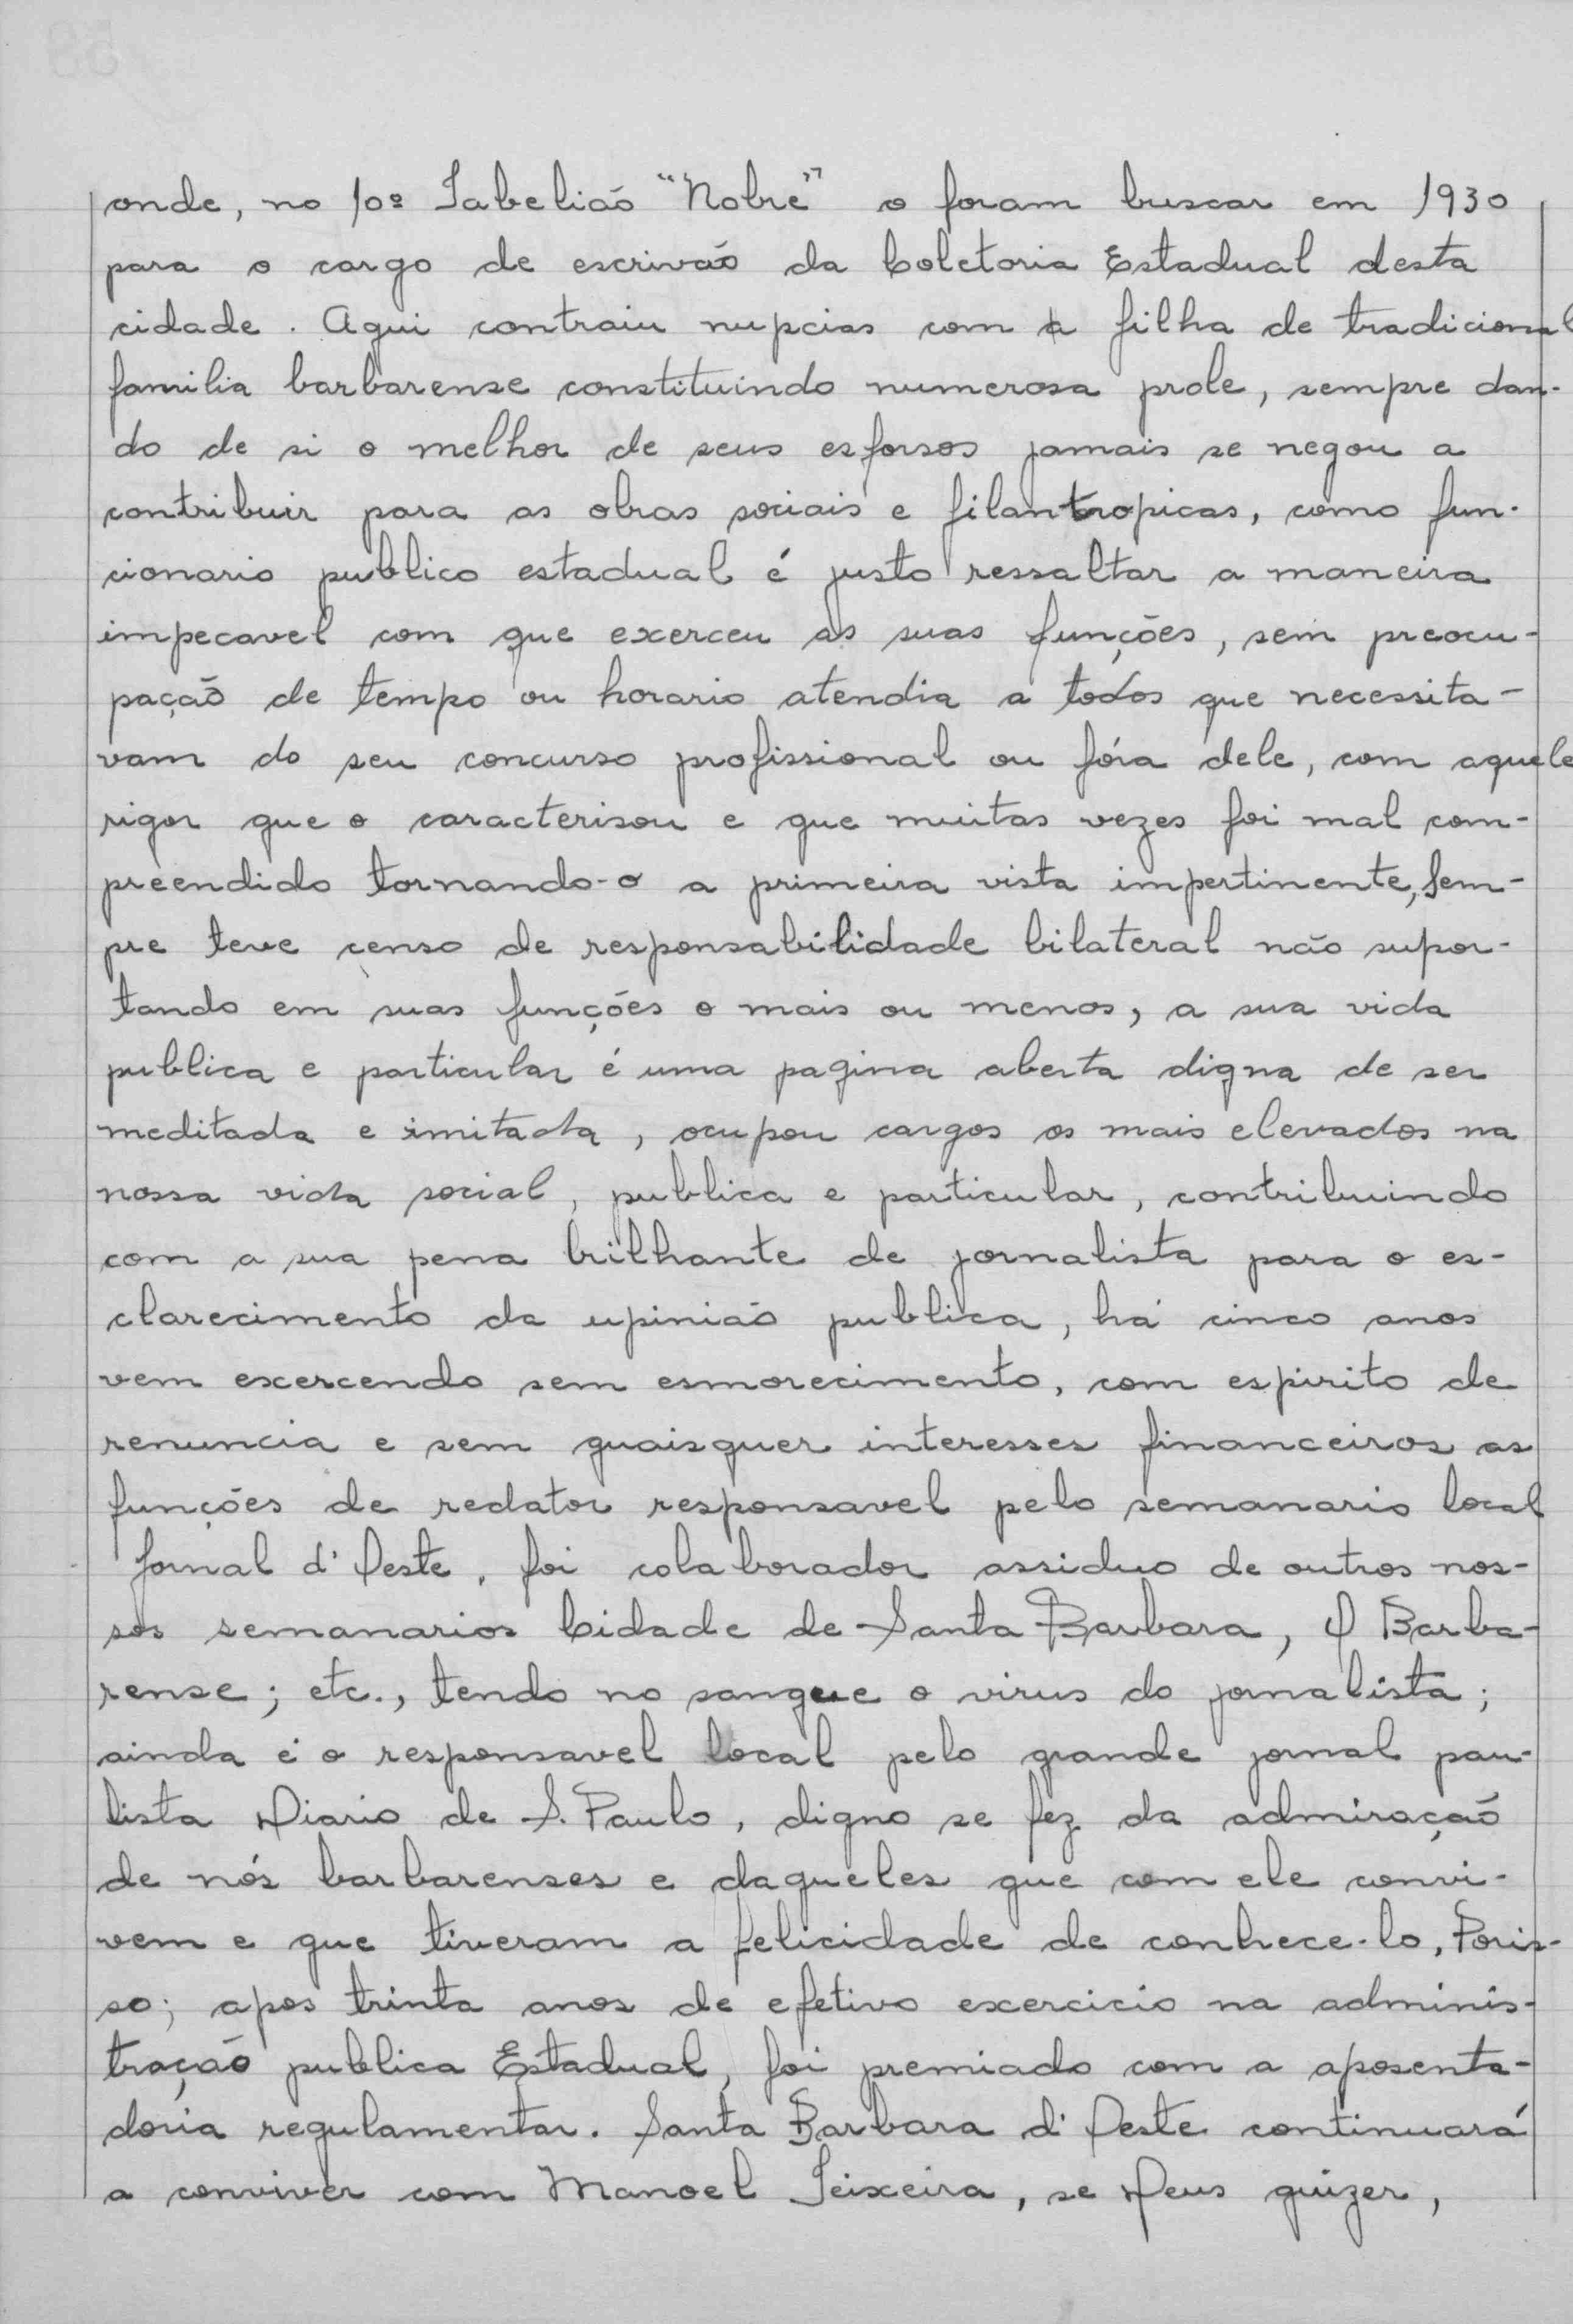 onde, no 10º Tabelião "Nobre" o foram buscar em 1930
para o cargo de escrivão da Coletoria Estadual desta
cidade. Aqui contraiu nupcias com a filha de tradicional
familia barbarense constituindo numerosa prole, sempre dan-
do de si o melhor de seus esforsos jamais se negou a
contribuir para as obras sociais e filantropicas, como fun-
cionario publico estadual é justo ressaltar a maneira
impecavel com que exerceu as suas funções, sem preocu-
pação de tempo ou horario atendia a todos que necessita-
vam do seu concurso profissional ou fóra dele, com aquele
rigor que o caracterisou e que muitas vezes foi mal com-
preendido tornando-o a primeira vista impertinente, Sem-
pre teve censo de responsabilidade bilateral não supor-
tando em suas funções o mais ou menos, a sua vida
publica e particular é uma pagina aberta digna de ser
meditada e imitada, ocupou cargos os mais elevados na
nossa vida social, publica e particular, contribuindo
com a sua pena brilhante de jornalista para o es-
clarecimento da upinião publica, há cinco anos
vem excercendo sem esmorecimento, com espirito de
renuncia e sem quaisquer interesses financeiros as
funções de redator responsavel pelo semanario local
Jornal d'Oeste, foi colaborador assiduo de outros nos-
sos semanarios Cidade de Santa Barbara, O Barba-
rense; etc., tendo no sangue o virus do jornalista;
ainda é o responsavel local pelo grande jornal pau-
lista Diario de S. Paulo, digno se fez da admiração
de nós barbarenses e daqueles que com ele convi-
vem e que tiveram a felicidade de conhece-lo, Poris-
so; apos trinta anos de efetivo excercicio na adminis-
tração publica Estadual, foi premiado com a aposenta-
doria regulamentar. Santa Barbara d'Oeste continuará
a conviver com Manoel Teixeira, se Deus quizer,